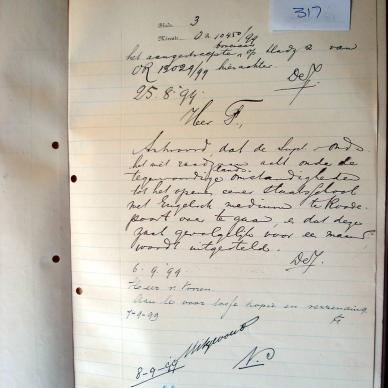 317
Bladz. 3
Minuut O.R. 10450/99
bovenaan
het aangestreepte op bladz 2 van
OR 13029/99 hierachter.
DeJ.
25.8.'99.
Heer F,
Antwoord dat de Supt. onds.
het niet raadzaam acht onder de
tegenwoordige omstandigheden
tot het openen eener Staatsschool
met Engelsch medium te Roode-
poort over te gaan, en dat deze
zaak gevolgelijk voor een maand
wordt uitgesteld.
DeJ.
6.9.'99.
Heer v.
voor kopie en verzending
7-9-99
8-9-99